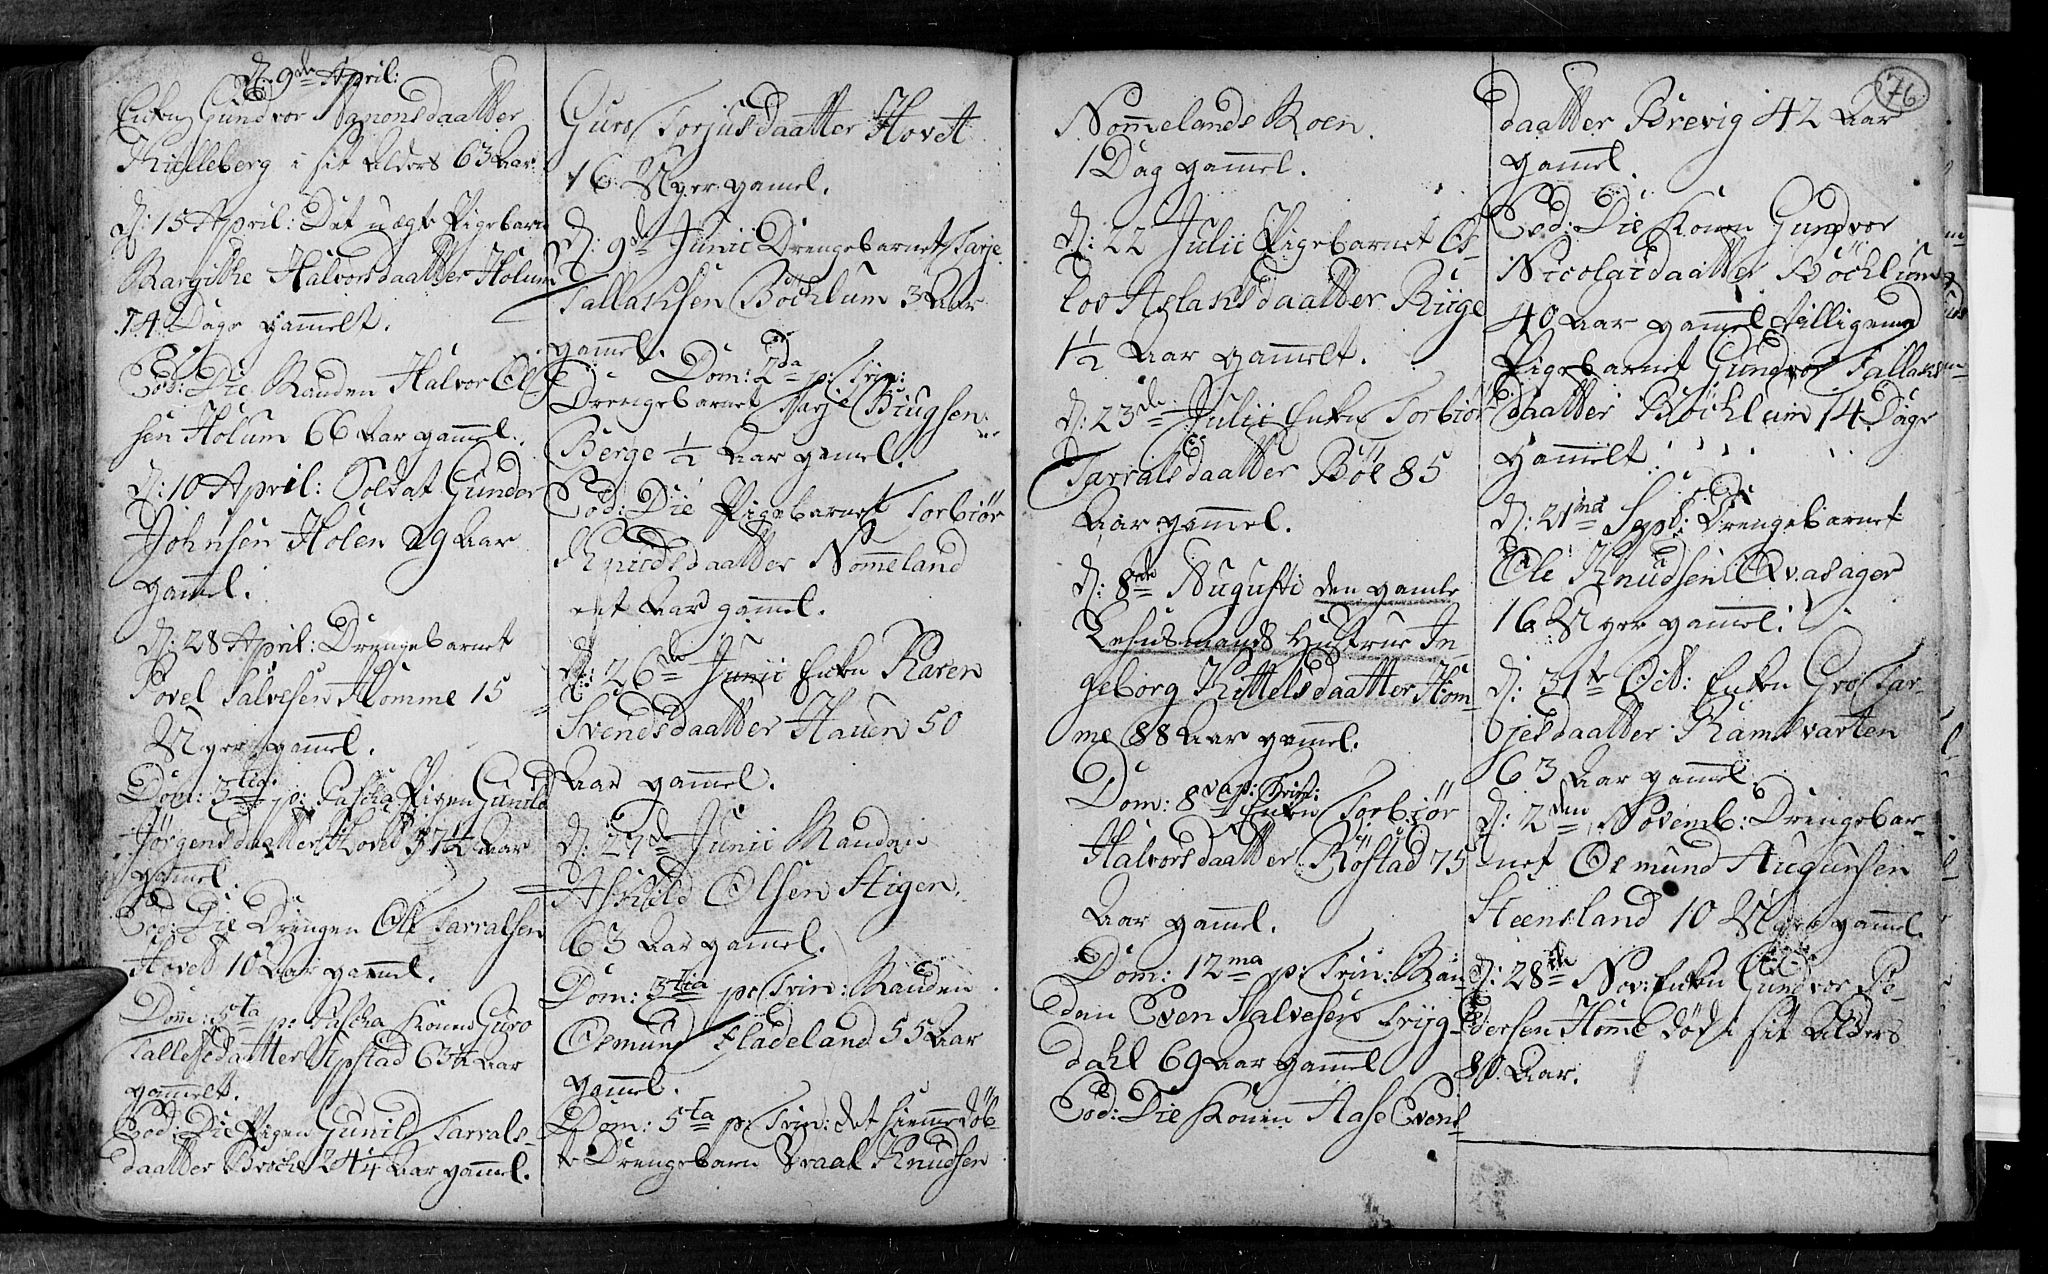 D: 9de April:
Enken Gundvor Aanonsdaatter
Kulleberg i sit Alders 63 Aar.
D: 15 April: Det uægte Pigebarn
Margithe Halvorsdaatter Holum
14 Dage gammelt.
Eod: Die Manden Halvor Ol
sen Holum 66 Aar gammel.
D: 10 April: Soldat Gunder
Johnsen Holen 29 Aar
gammel.
D: 28 April: Drengebarnet
Povel Salvesen Homme 15
Uger gammel.
Dom: 3tia p: Pascha Pigen Gunild
Jørgensdaatter Hovet 37½ Aar
gammel.
Eod: Die Drengen Ole Tarralsen
Hovet 10 Aar gammel.
Dom: 5ta p: Pascha Konen Guro
Tallefsdaatter Upstad 63¼ Aar
gammelt.
Eod: Die Pigen Gunild Tarrals-
daatter Brocke 24¼ Aar gammel.
Guro Torjusdaatter Hovet
16 Uger gamel.
D: 9de Junii Drengebarnet Tarje
Tallaksen Böcklum 3 Aar
gammel.
Dom: 2da p: Trin:
Drengebarnet Tarje Biugsen
Berge ½ Aar gamel.
Eod: Die Pigebarnet Torbiør
Knudsdaatter Nomeland
eet Aar gammel.
D: 26de Junii Enken Karen
Svendsdaatter Hauen 50
Aar gammel.
D: 27de Junii Manden
Askild Olsen Stigen
63 Aar gammel.
Dom: 3tia p: Trin: Manden
Osmund Fladeland 55 Aar
gammel.
Dom: 5ta p: Trin: det hiemmedöb-
te Drengebarn Vraal Knudsen
Nomelands Moen.
1 Dag gammel.
D: 22 Julii Pigebarnet Os-
lov Aslaksdaatter Riige
1½ Aar gammelt.
D: 23de Julii Enken Torbiör
Tarralsdaatter Böe 85
Aar gammel.
D: 8de Augusti den gamle
Lehnsmands Hustrue In-
geborg Kittelsdaatter Hom-
me 88 Aar gammel.
Dom: 8va p: Trin:
Enken Torbiør
Halvorsdaatter Röstad 75
Aar gammel.
Dom: 12ma p: Trin: Man-
den Even Salvesen Tryg-
dahl 69 Aar gammel
Eod: Die Konen Aase Evens-
76
daatter Brevig 42 Aar
gammel.
Eod: Die Konen Gundvor
Nicolaidaatter Böcklum
40 Aar gammel tilligemed
Pigebarnet Gundvor Tallaks-
daatter Böcklum 14 Dage
gammelt.
D: 21ma Sept: Drengebarnet
Ole Knudsen Qvasager
16 Uger gammel.
D: 31te Oct: Enken Gro Tar-
jesdaatter Ramsvarten
63 Aar gammel.
D: 2den Novemb: Drengebar-
net Osmund Augunsen
Steensland 10 Uger gammel.
D: 28de Nov: Enken Gundvor Pe-
dersen Homme död i sit Alders
80 Aar.